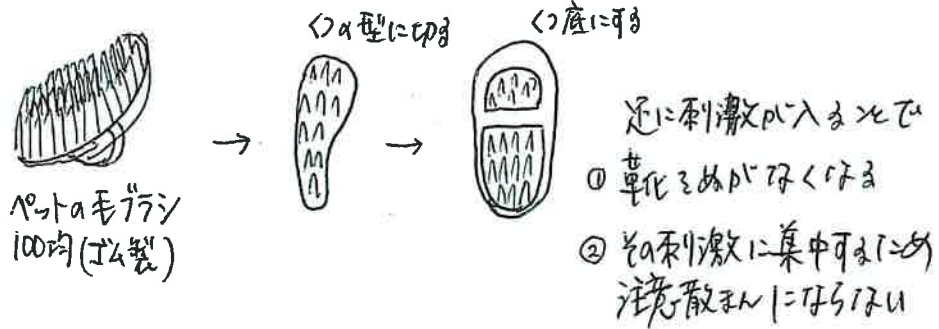 ペットの毛ブラシ
100均(ゴム製)
くつの型に切る
くつ底にする
足に刺激が入ることで
① 靴をぬがなくなる
② その刺激に集中するため
注意散まんにならない